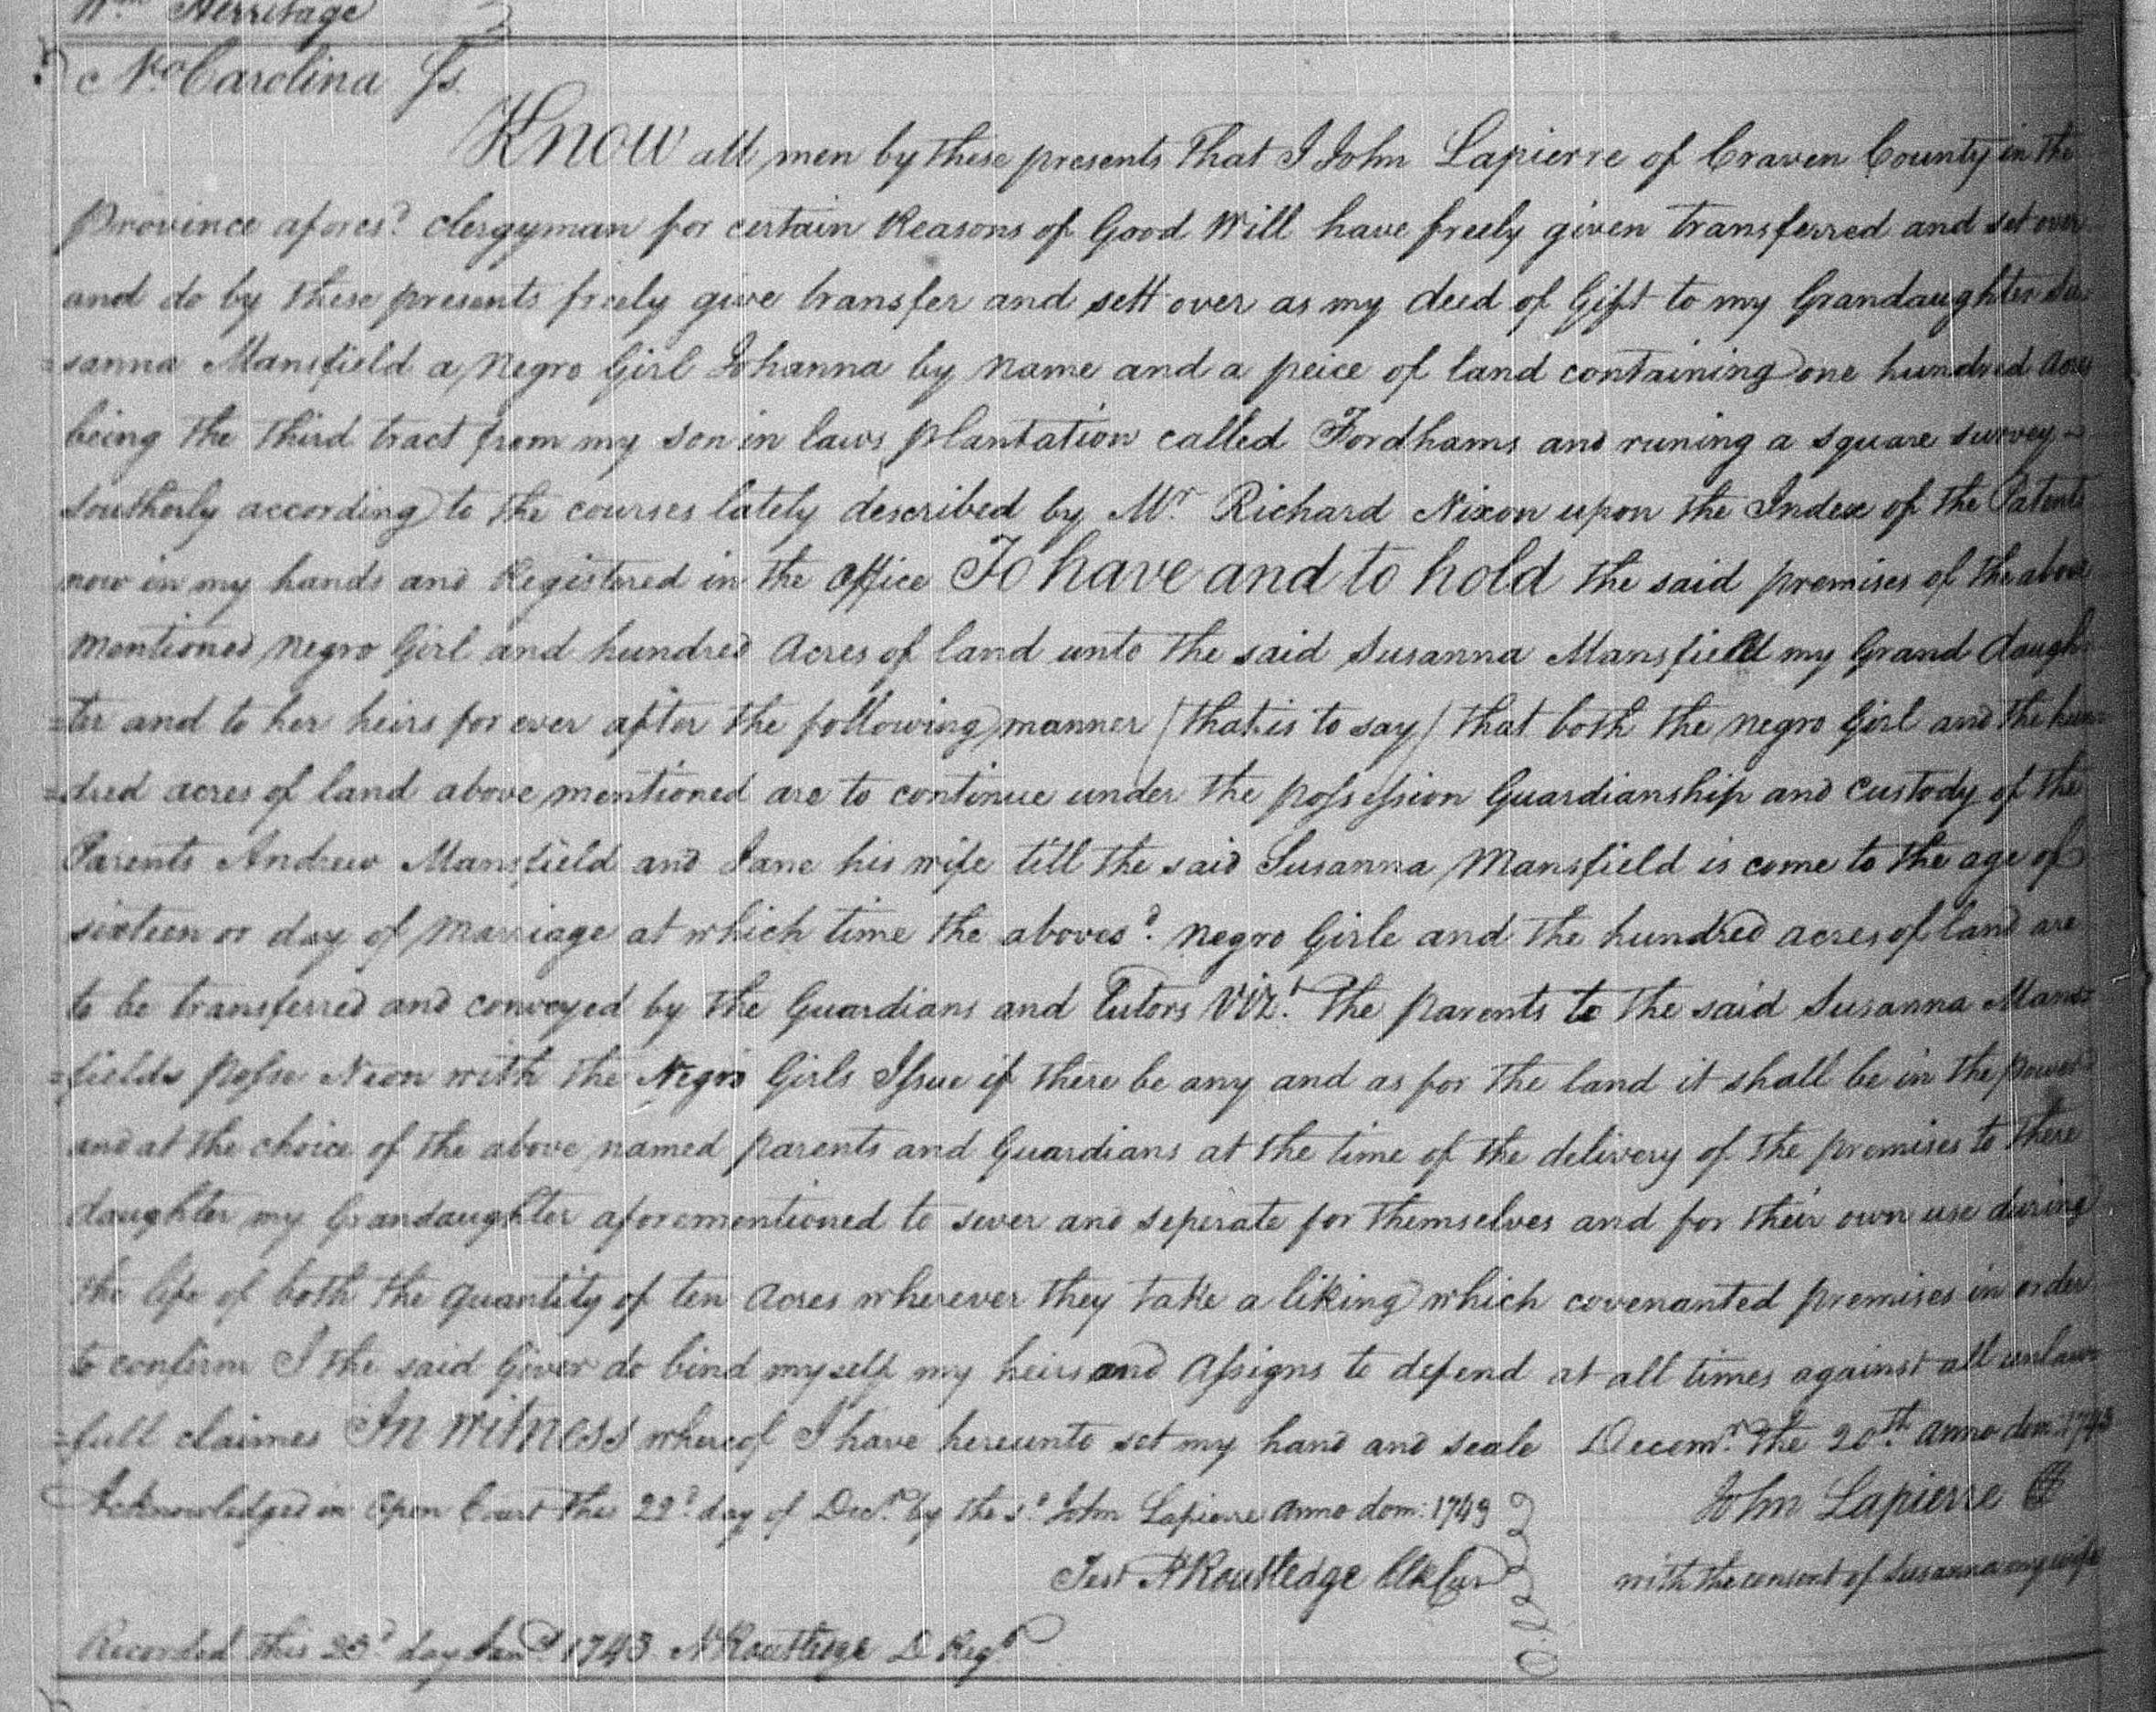 Wm Herritage
No Carolina Ss.
Know all men by these presents That I John Lapierre of Craven County in the
Province afores.d Clergyman for certain Reasons of Good Will have freely given transferred and set over
and do by these presents freely give transfer and sett over as my deed of Gift to my Grandaughter Su
=sanna Mansfield a Negro Girl Johanna by name and a peice of land containing one hundred acres
being the third tract from my son in laws plantation called Fordhams and runing a square survey
southerly according to the courses lately described by Mr Richard Nixon upon the Index of the Patents
now in my hands and Registered in the office To have and to hold the said premises of the above
mentioned negro Girl and hundred acres of land unto the said Susanna Mansfield my Grand daugh
=ter and to her heirs for ever after the following manner (that is to say) that both the negro Girl and the hun
=dred acres of land above mentioned are to continue under the possession Guardianship and custody of the
Parents Andrew Mansfield and Jane his wife till the said Susanna Mansfield is come to the age of
sixteen or day of marriage at which time the aboves.d negro Girle and the hundred acres of land are
to be transferred and conveyed by the Guardians and Tutors Vizt. The parents to the said Susanna Mans=
=fields posse Neon with the Negro Girls Issue if there be any and as for the land it shall be in the power
and at the choice of the above named parents and Guardians at the time of the delivery of the premises to there
daughter my Grandaughter aforementioned to sever and seperate for themselves and for their own use during
the life of both the quantity of ten acres wherever they take a liking which covenanted premises in order
to confirm I the said Giver do bind myself my heirs and Assigns to defend at all times against all unlaw
=full claimes In witness whereof I have hereunto set my hand and seale Decemr. the 20th. anno dom: 1743
Acknowledged in Open Court the 22d day of Decr. by the sd John Lapierre anno dom: 1743
John Lapierre
Test N Routledge Clk Cur
with the consent of Susanna my wife
Recorded this 23d day Jany 1743 N Routledge D Regr